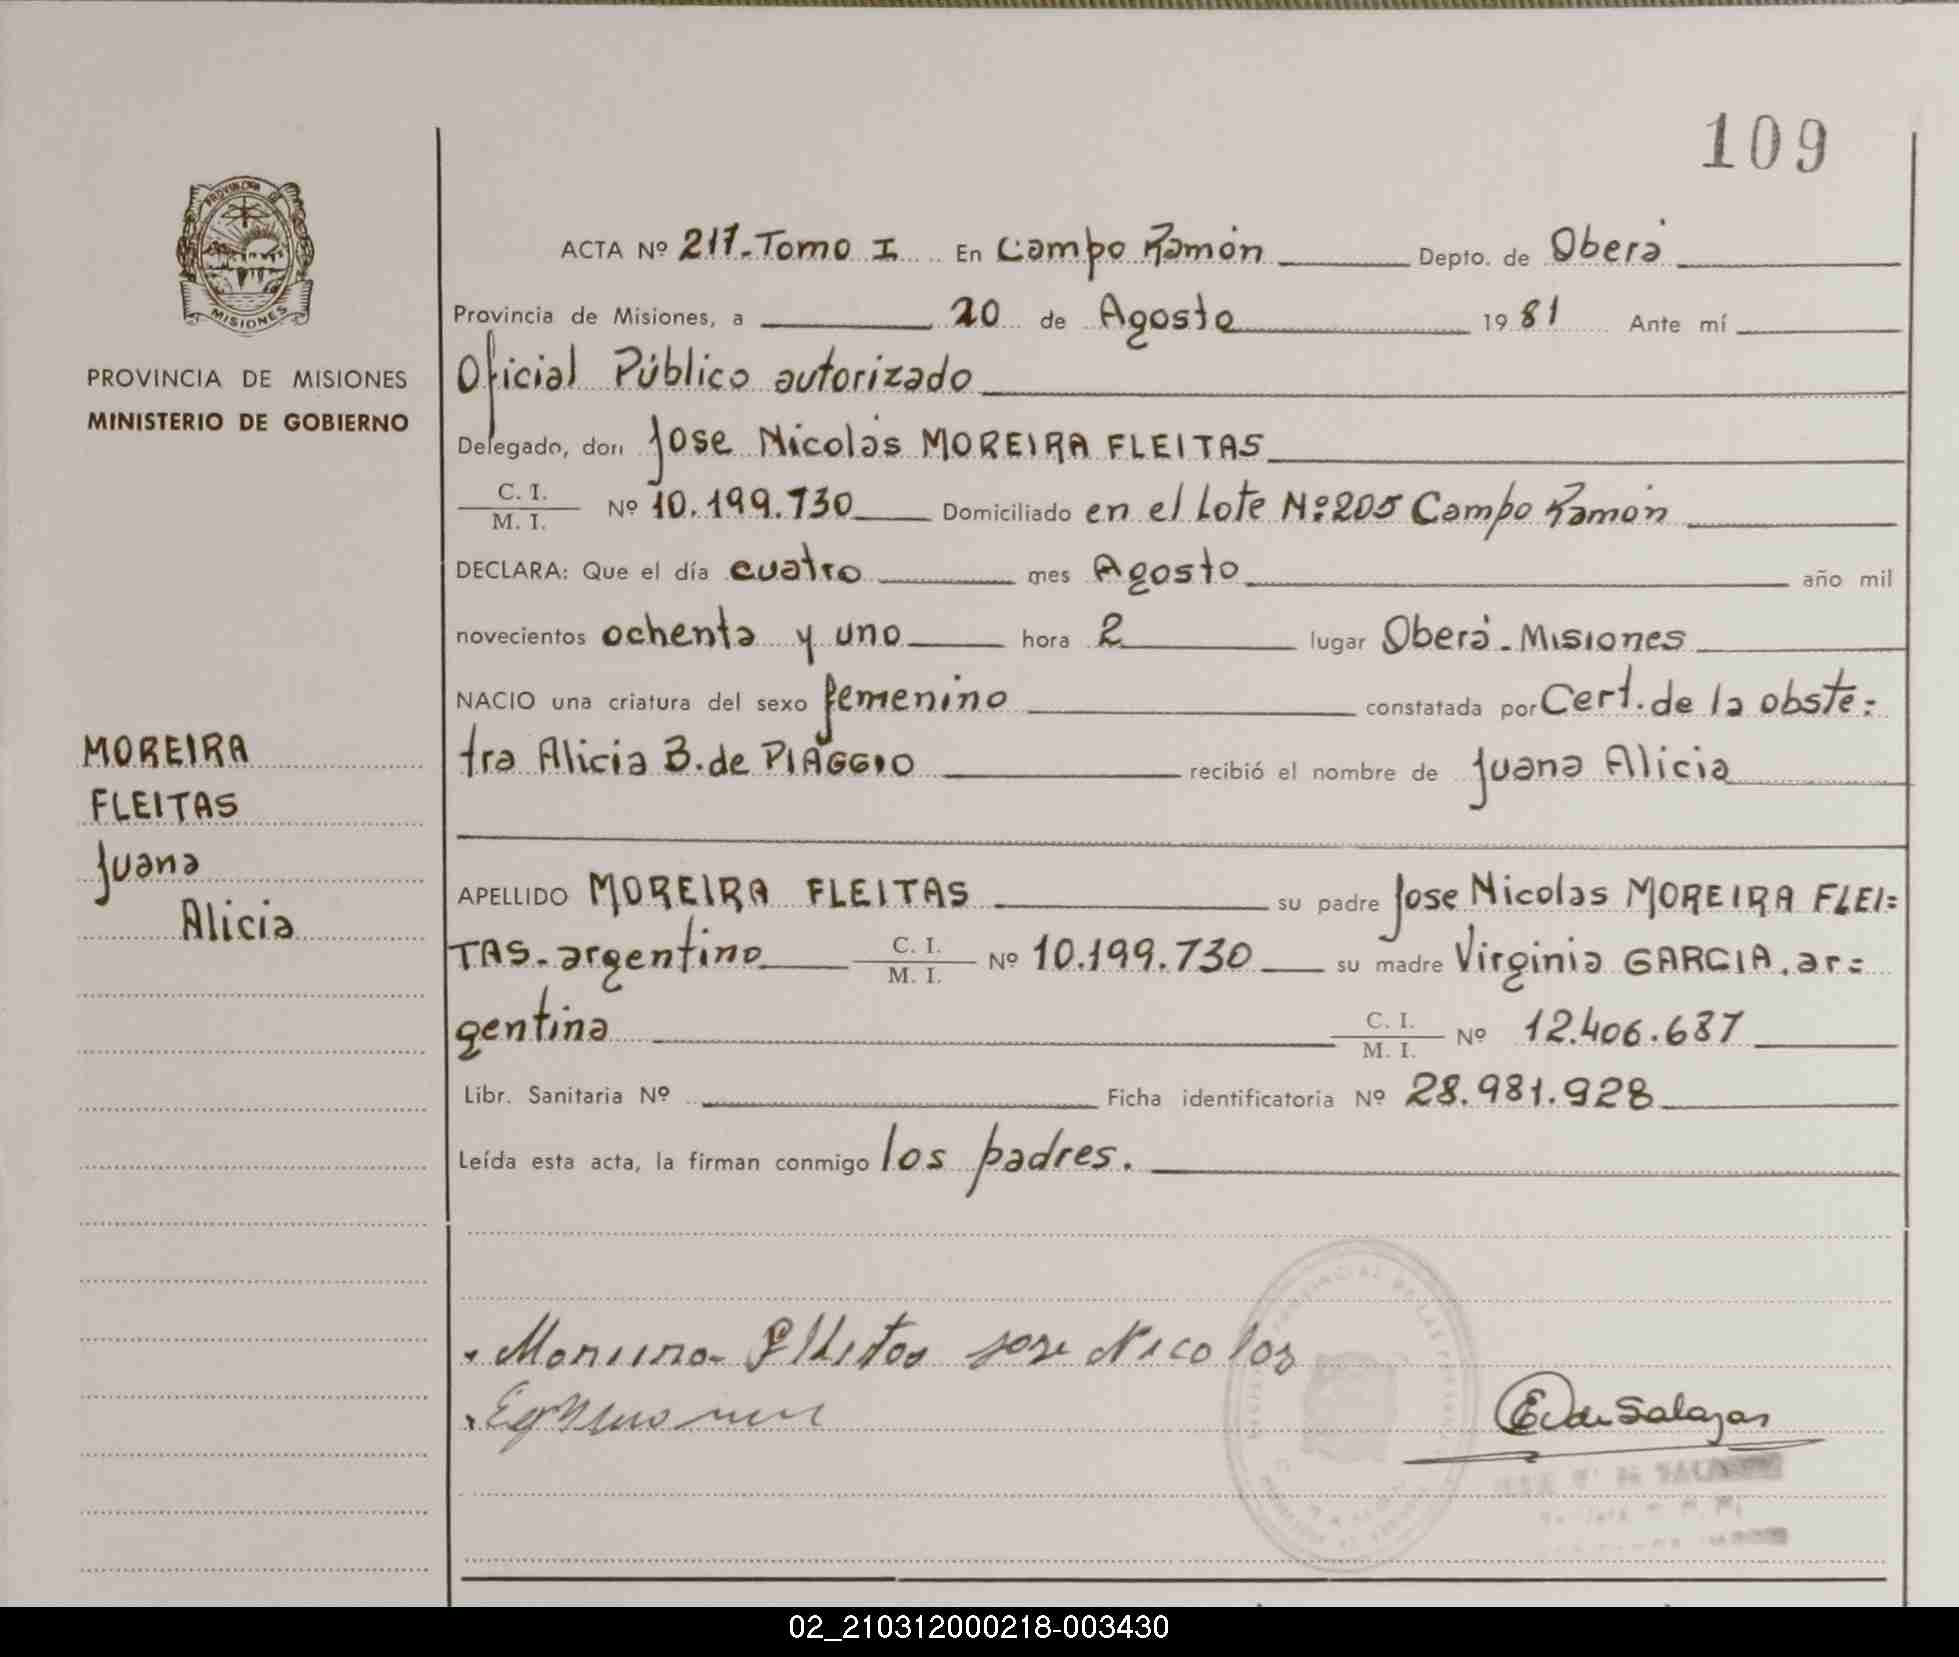 109
PROVINCIA DE
MISIONES
PROVINCIA DE MISIONES
MINISTERIO DE GOBIERNO
MOREIRA
FLEITAS
Juana
Alicia
ACTA Nº 217.-Tomo I En Campo Ramón Depto. de Oberá
Provincia de Misiones, a 20 de Agosto 19 81 Ante mí
Oficial Público autorizado
Delegado, don Jose Nicolás MOREIRA FLEITAS
C. I.
M. I. Nº 10.199.730 Domiciliado en el Lote Nº 205 Campo Ramón
DECLARA: Que el día cuatro mes Agosto año mil
novecientos ochenta y uno hora 2 lugar Oberá - Misiones
NACIO una criatura del sexo femenino constatada por Cert. de la obste=
tra Alicia B. de PIAGGIO recibió el nombre de Juana Alicia
APELLIDO MOREIRA FLEITAS su padre Jose Nicolas MOREIRA FLEI=
TAS - argentino C. I. M. I. Nº 10.199.730 su madre Virginia GARCIA. ar=
gentina C. I. M. I. Nº 12.406.687
Libr. Sanitaria Nº Ficha identificatoria Nº 28.981.928
Leída esta acta, la firman conmigo los padres.
Jose Nicolas
E. de Salazar
02_210312000218-003430